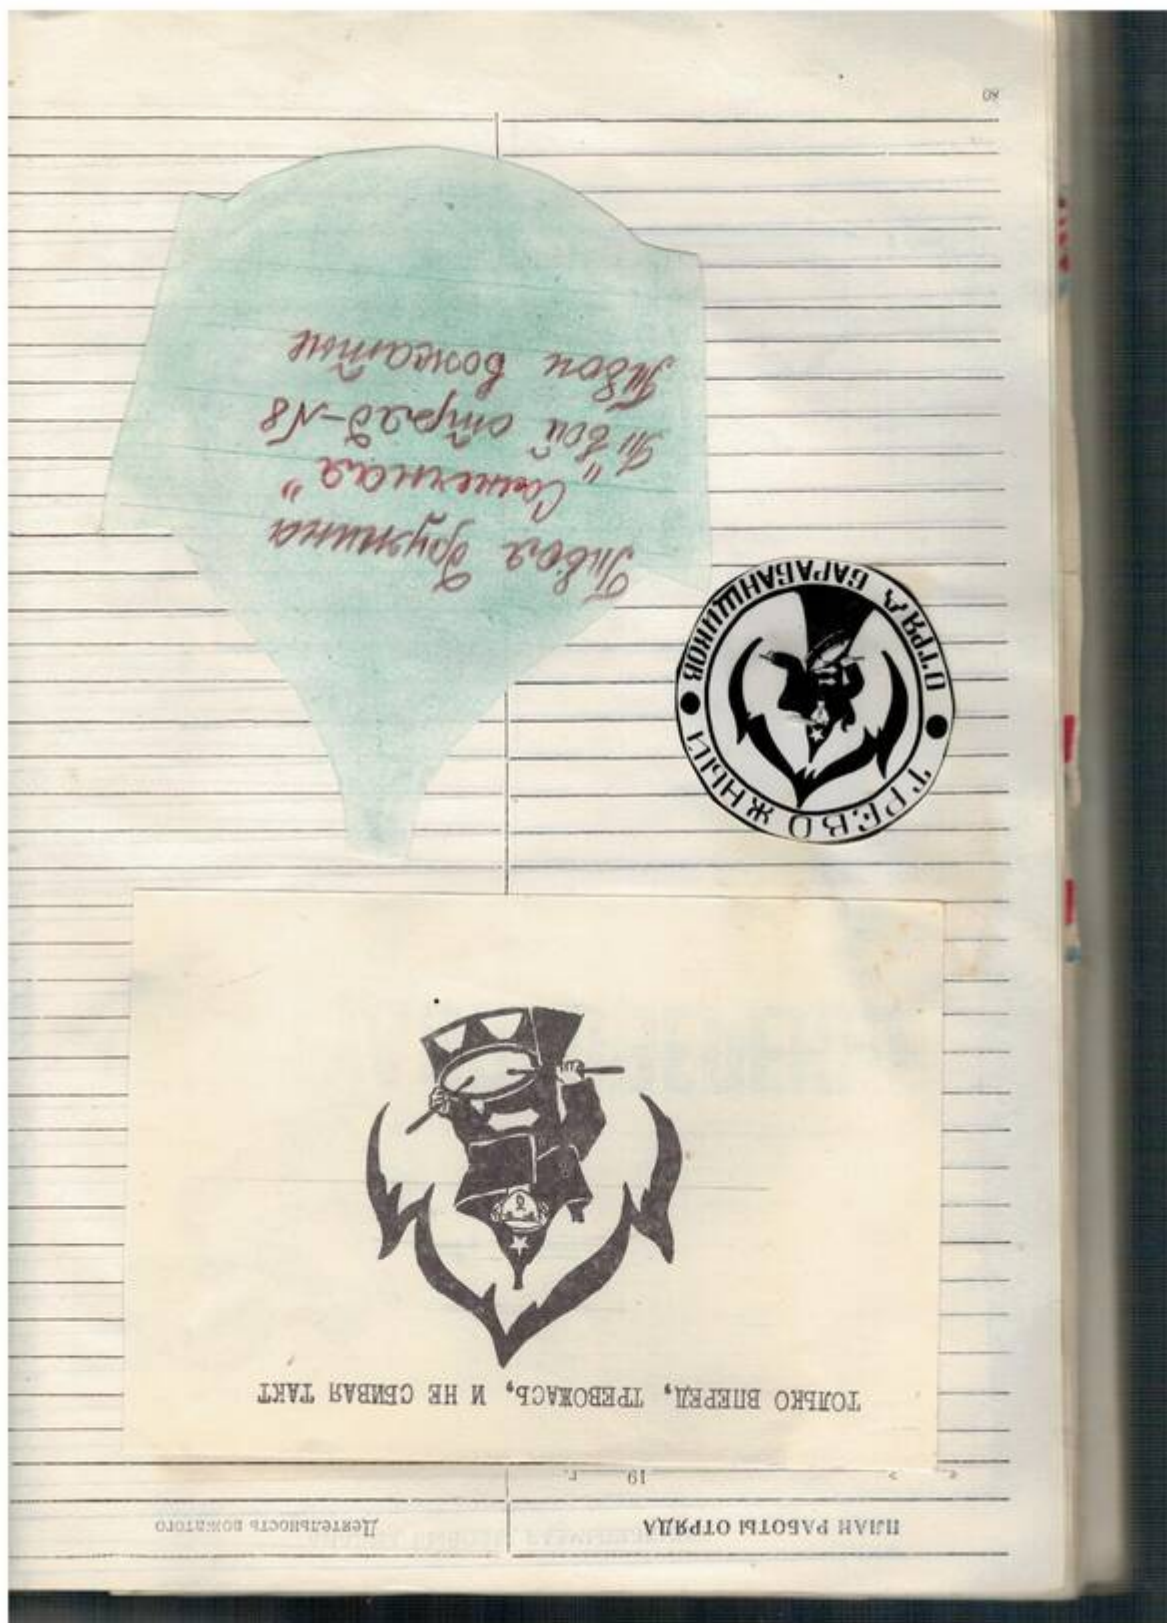 ПЛАН РАБОТЫ ОТРЯДА
Деятельность вожатого
« » 19 г.
ТОЛЬКО ВПЕРЕД, ТРЕВОЖАСЬ, И НЕ СБИВАЯ ТАКТ
ТРЕВОЖНЫЙ
ОТРЯД БАРАБАНЩИКОВ
Твоя дружина
"Солнечная"
Твой отряд-N8
Твои вожатые
80